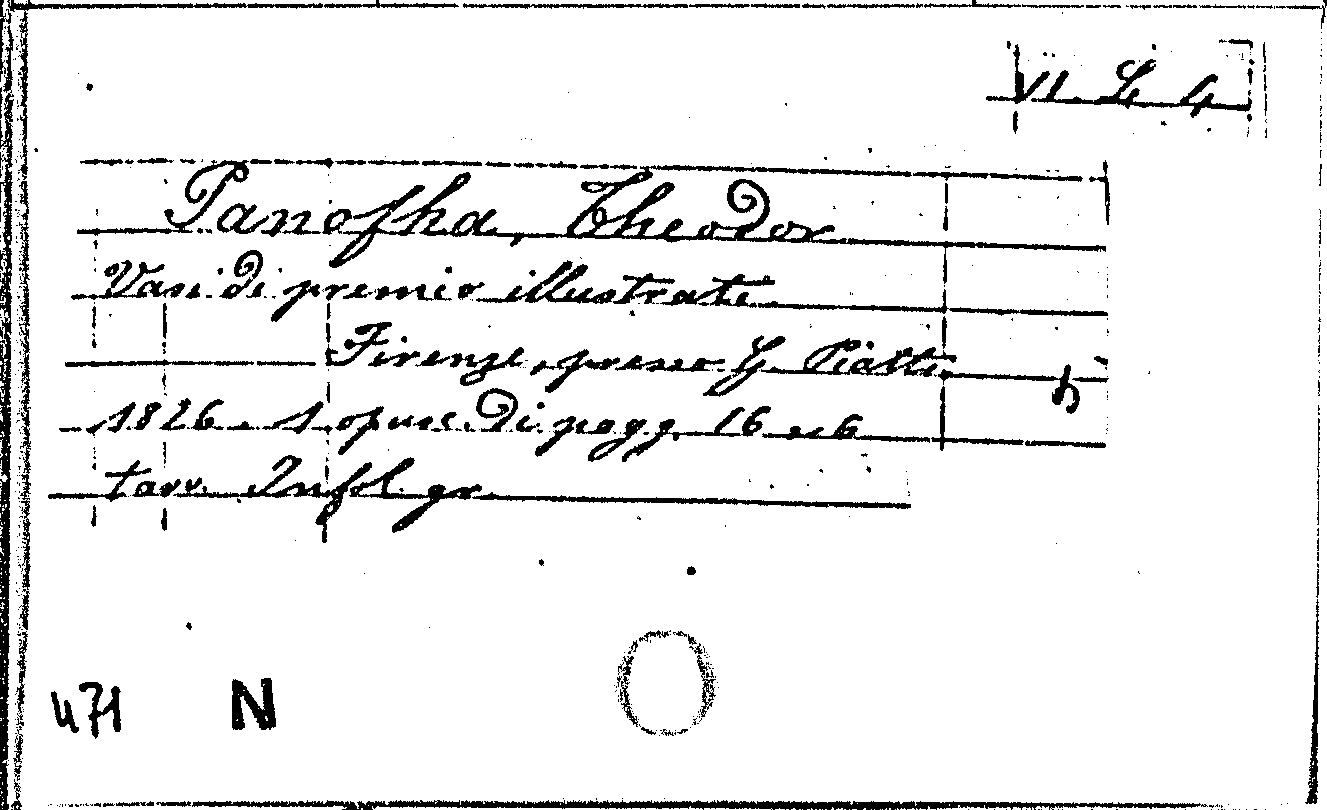 VI. L. 4
Panofka, Theodor
Vasi di premio illustrati.
Firenze, presso G. Piatti.
1826. 1 opusc. di pagg. 16 e 6
tavv. In fol. gr.
471 N